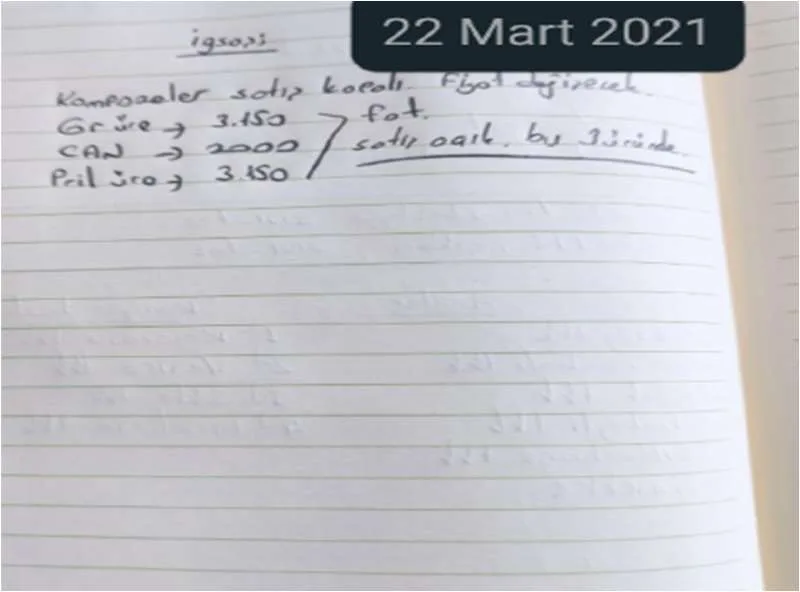 22 Mart 2021
igsasi
Kompozeler satış kapalı. Fiyat değişecek.
Gr üre → 3.150
CAN → 2000
Pril üre → 3.150
fot.
satış açık. bu 3 üründe.